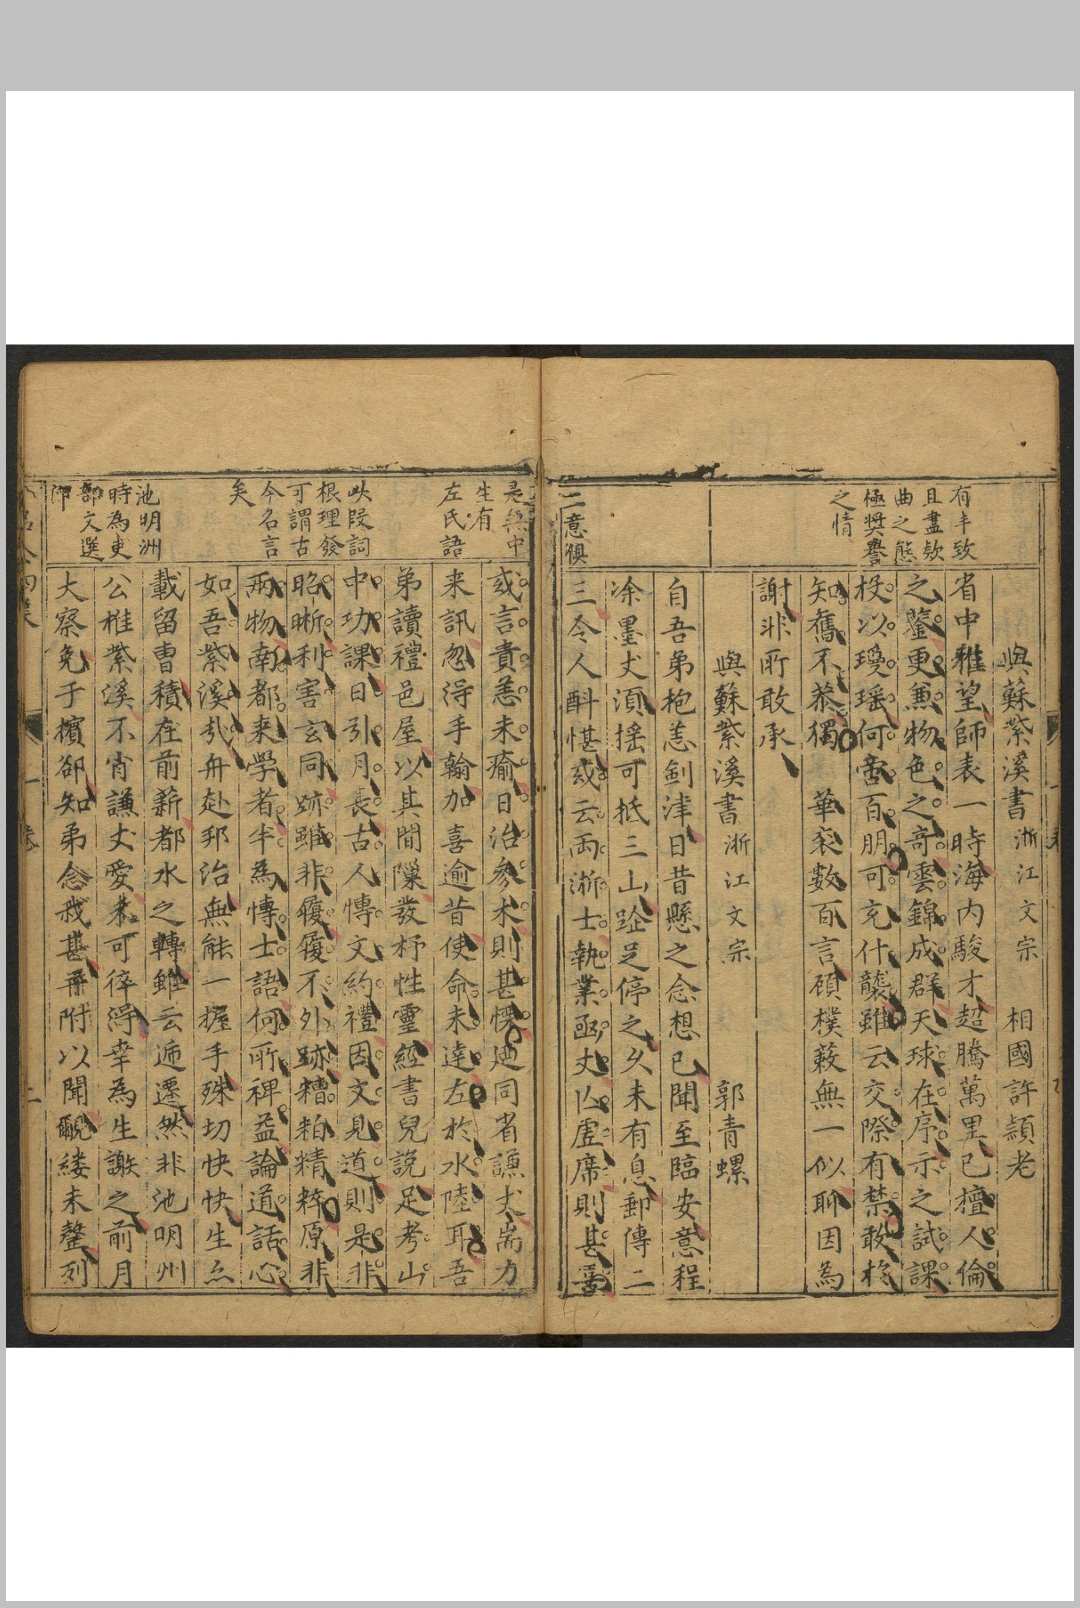 有丰致
且盡欵
曲之態
極奬譽
之情
與蘇紫溪書 浙江文宗 相國許頴老
省中雅望師表一時海内駿才超騰萬里已擅人倫
之鑒更兼物色之奇雲錦成群天球在序示之試課
投以瓊瑶何啻百朋可充什襲雖云交際有禁敢於
知舊不恭獨華衮數百言碩樸蔌無一似聊因為
謝非所敢承
與蘇紫溪書 浙江文宗 郭青螺
自吾弟抱恙劍津日昔懸之念想已聞至臨安意程
凃墨丈湏摇可抵三山跫足停之乆未有息郵傳二
二意俱
三令人斟愖或云兩浙士執業函丈仏虚席則甚喜
是無中
生有
左氏語
或言貴恙未瘉日治參术則甚愕廼同省謙丈耑力
来訊忽得手翰加喜逾昔使命未逹左於水陸耳吾
弟讀禮邑屋以其閒隟發杼性靈經書兒説足考山
此段詞
根理發
可謂古
今名言
矣
中功課日引月長古人愽文約禮因文見道則是非
昭晰利害玄同跡雖非履履不外跡糟粕精粹原非
兩物南都来学者半為愽士語何所裨益論道話心
如吾紫溪扎舟赴邦治無能一握手殊切快快生㣲
池明洲
時為吏
部文選
郎
載留曹積在前薪都水之轉雖云遞遷然非池明州
公椎紫溪不宵謙丈愛未可得幸為生謝之前月
大察免于擯郤知弟念我甚再附以聞覼縷未罄列